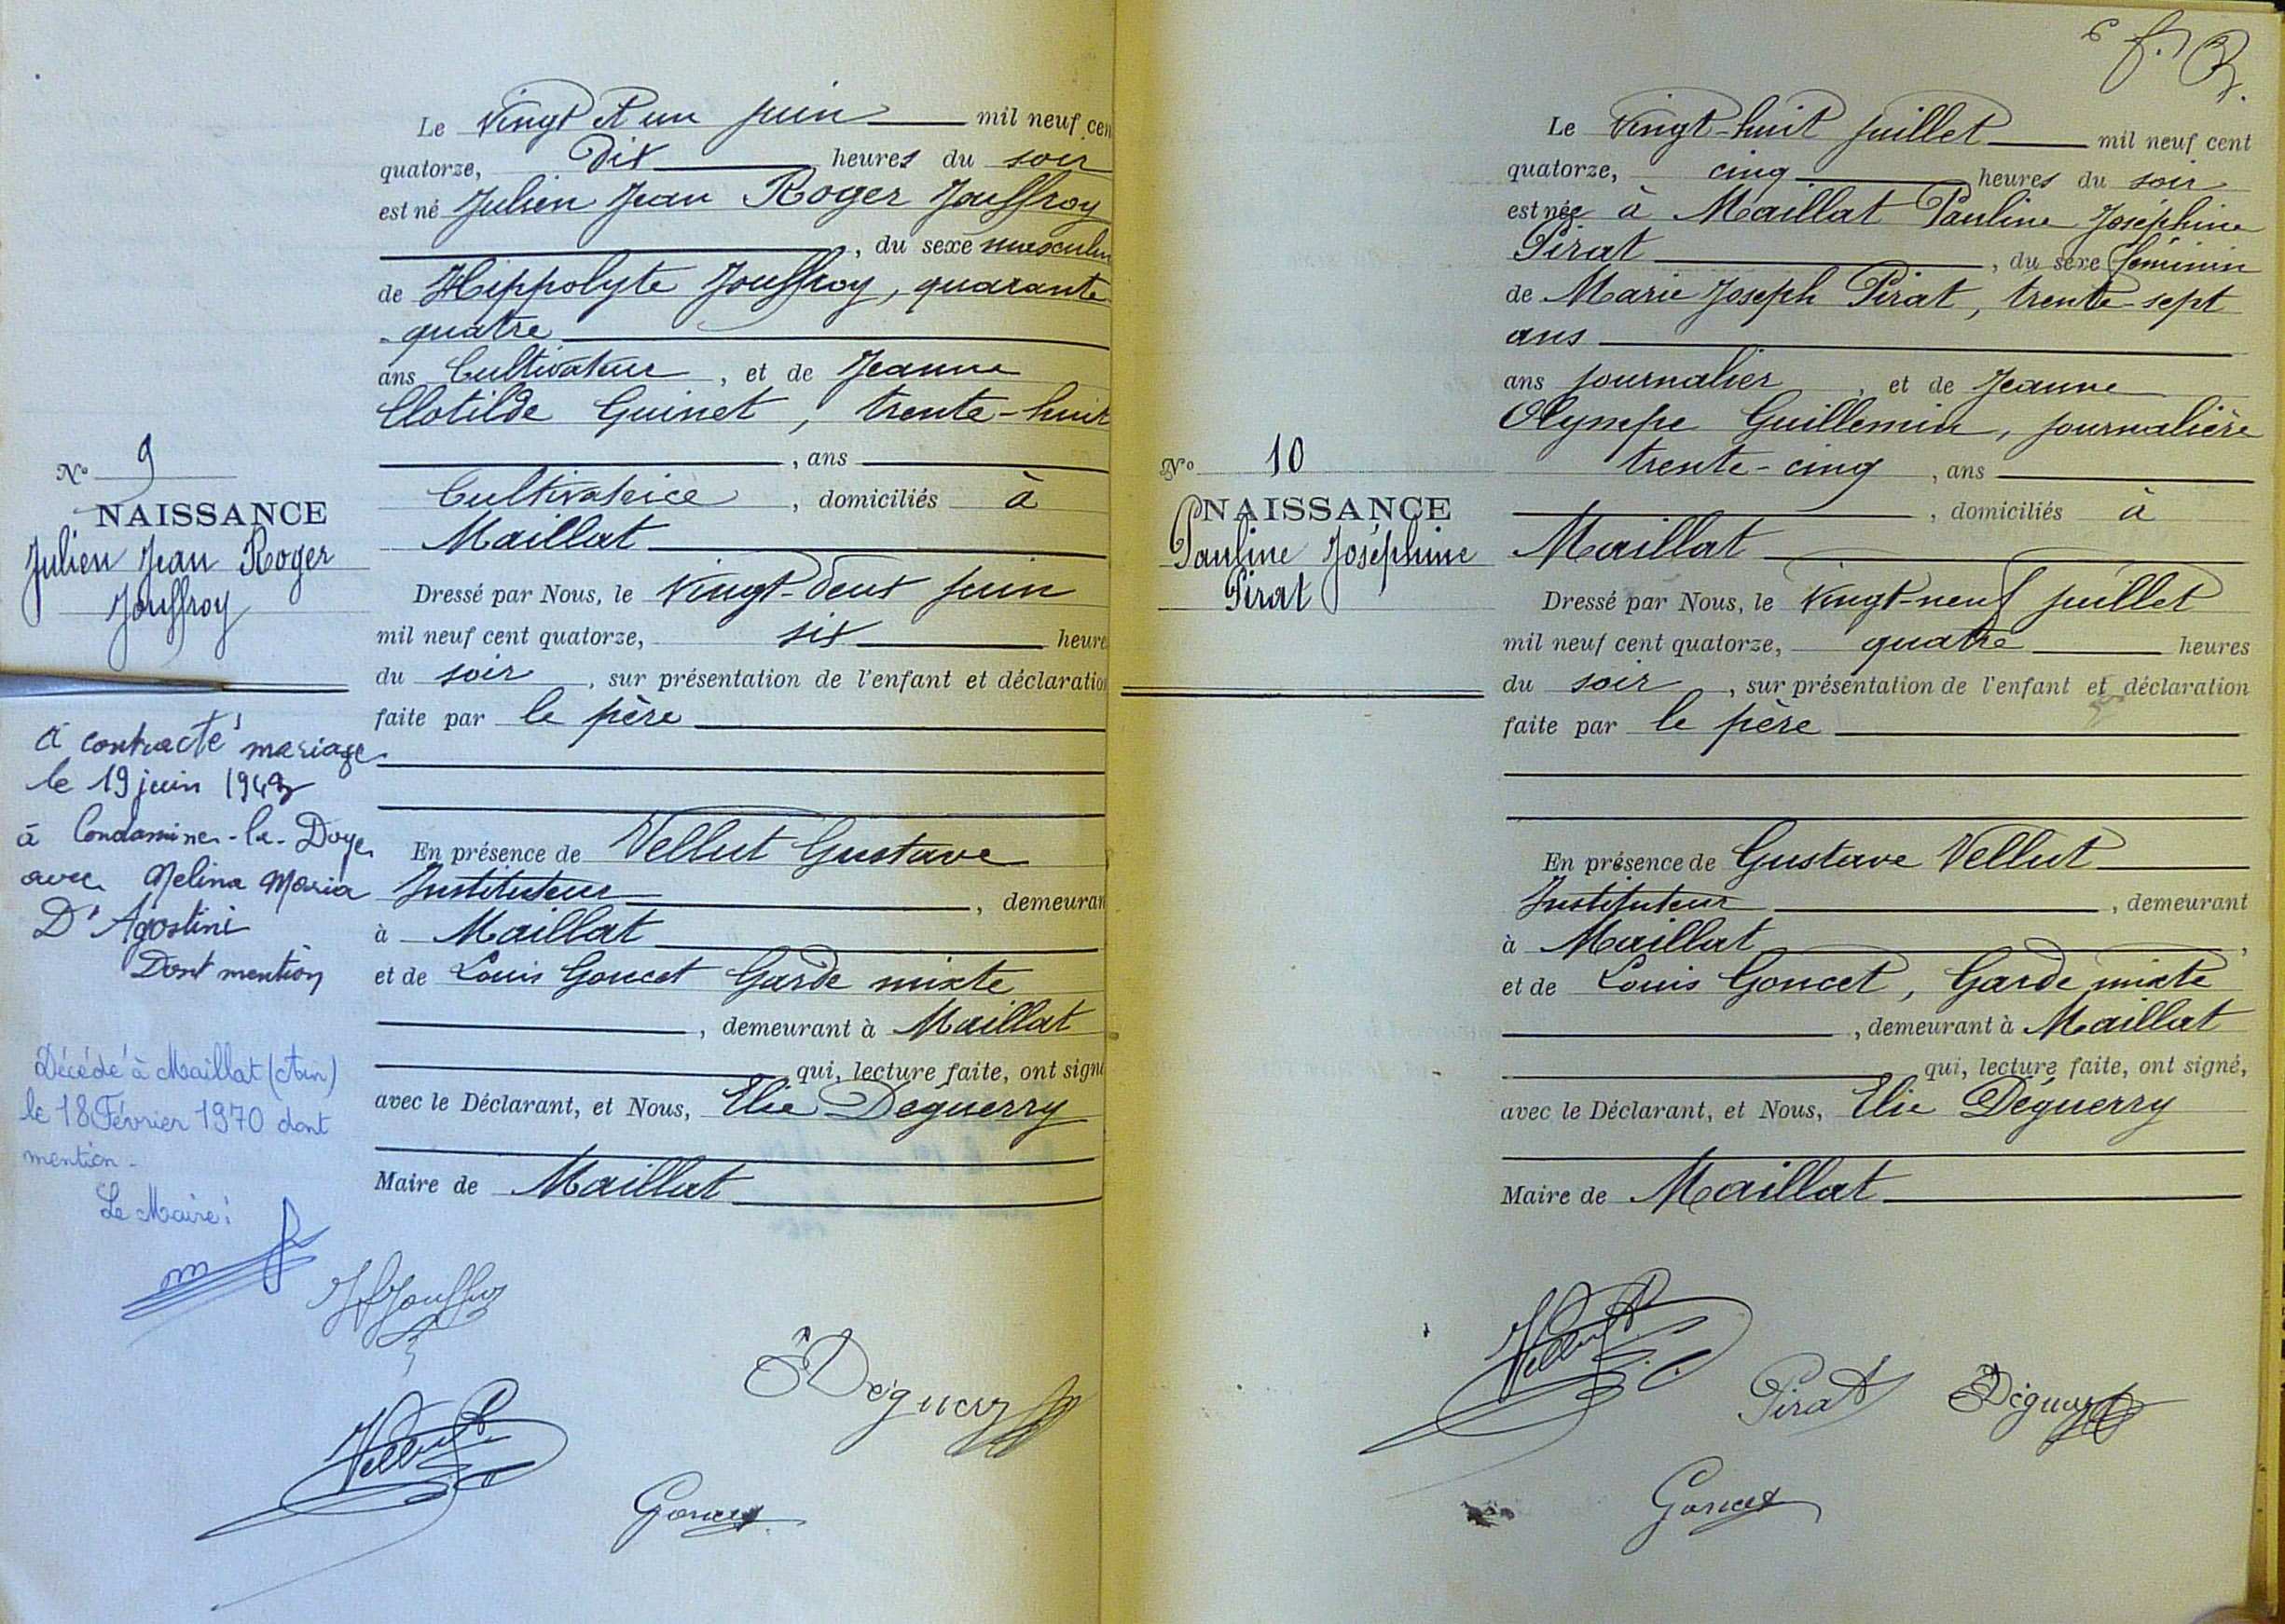 Le vingt et un juin mil neuf cen
quatorze, dix heures du soir
est né Julien Jean Roger Jouffroy
, du sexe masculin
de Hippolyte Jouffroy, quarante
quatre
ans Cultivateur, et de Jeanne
Clotilde Guinet, trente-huit
, ans
Cultivatrice, domiciliés à
Maillat
Dressé par Nous, le vingt-deux juin
mil neuf cent quatorze, six heure
du soir, sur présentation de l'enfant et déclaration
faite par le père
En présence de Vellut Gustave
Instituteur, demeuran
à Maillat
et de Louis Goncet Garde mixte
, demeurant à Maillat
qui, lecture faite, ont signé
avec le Déclarant, et Nous, Elie Déguerry
Maire de Maillat
N° 9
NAISSANCE
Julien Jean Roger
Jouffroy
A contracté mariage
le 19 juin
à Condamine-la-Doye
avec Melina Maria
D'Agostini
Dont mention
Décédé à Maillat (Ain)
le 18 Février 1970 dont
mention.
Le Maire:
Jouffroy
Vellut
EDéguerry
Goncet
Le vingt-huit juillet mil neuf cent
quatorze, cinq heures du soir
est née à Maillat Pauline Joséphine
Pirat, du sexe féminin
de Marie Joseph Pirat, trente-sept
ans
ans journalier, et de Jeanne
Olympe Guillemin, journalière
trente-cinq, ans
, domiciliés à
Maillat
Dressé par Nous, le vingt-neuf juillet
mil neuf cent quatorze, quatre heures
du soir, sur présentation de l'enfant et déclaration
faite par le père
En présence de Gustave Vellut
Instituteur, demeurant
à Maillat,
et de Louis Goncet, Garde mixte
, demeurant à Maillat
qui, lecture faite, ont signé,
avec le Déclarant, et Nous, Elie Déguerry
Maire de Maillat
N° 10
NAISSANCE
Pauline Joséphine
Pirat
Vellut
Pirat
EDéguerry
Goncet